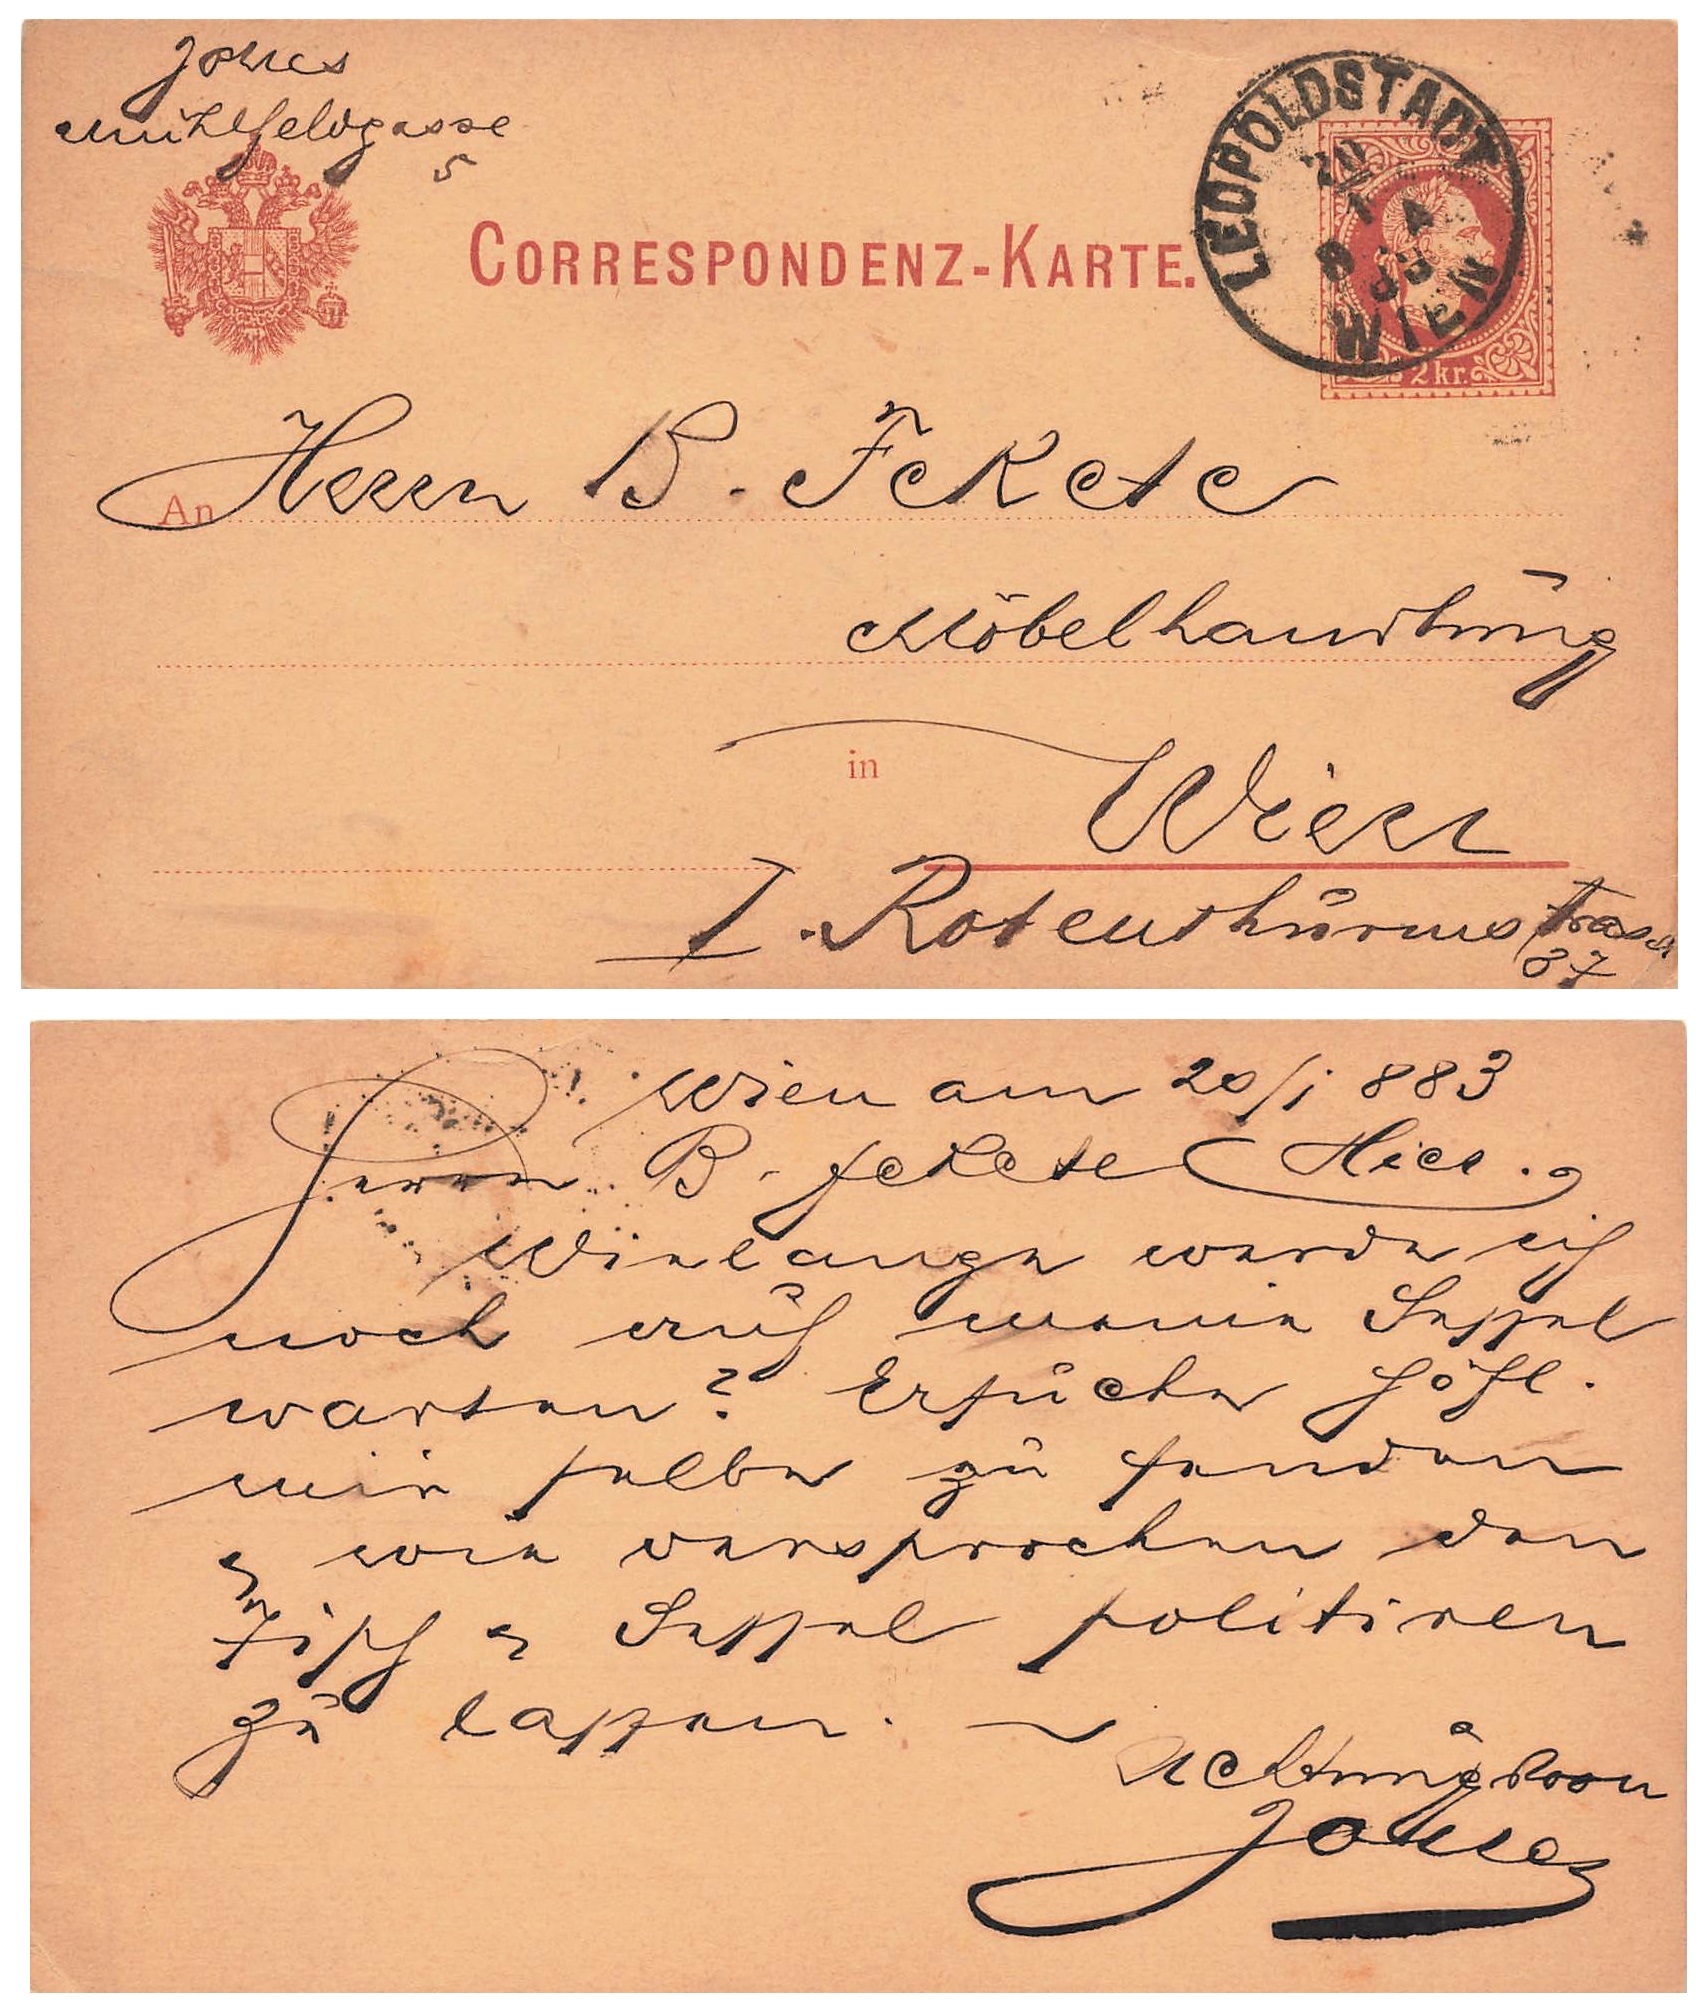 Jones
Mühlfeldgasse
5
CORRESPONDENZ-KARTE.
LEOPOLDSTADT
20
1
83
WIEN
2 kr.
An Herrn B. Fekete
Möbelhandlung
in Wien
I. Rotenthürmstrasse
37
Wien am 20/1 883
Herrn B. Fekete Hier.
Wielange werde ich
noch auf meine Sessel
warten? Ersuche höfl.
mir selbe zu senden
& wie versprochen den
Tisch & Sessel politiren
zu lassen.
Achtungsvoll
Jones